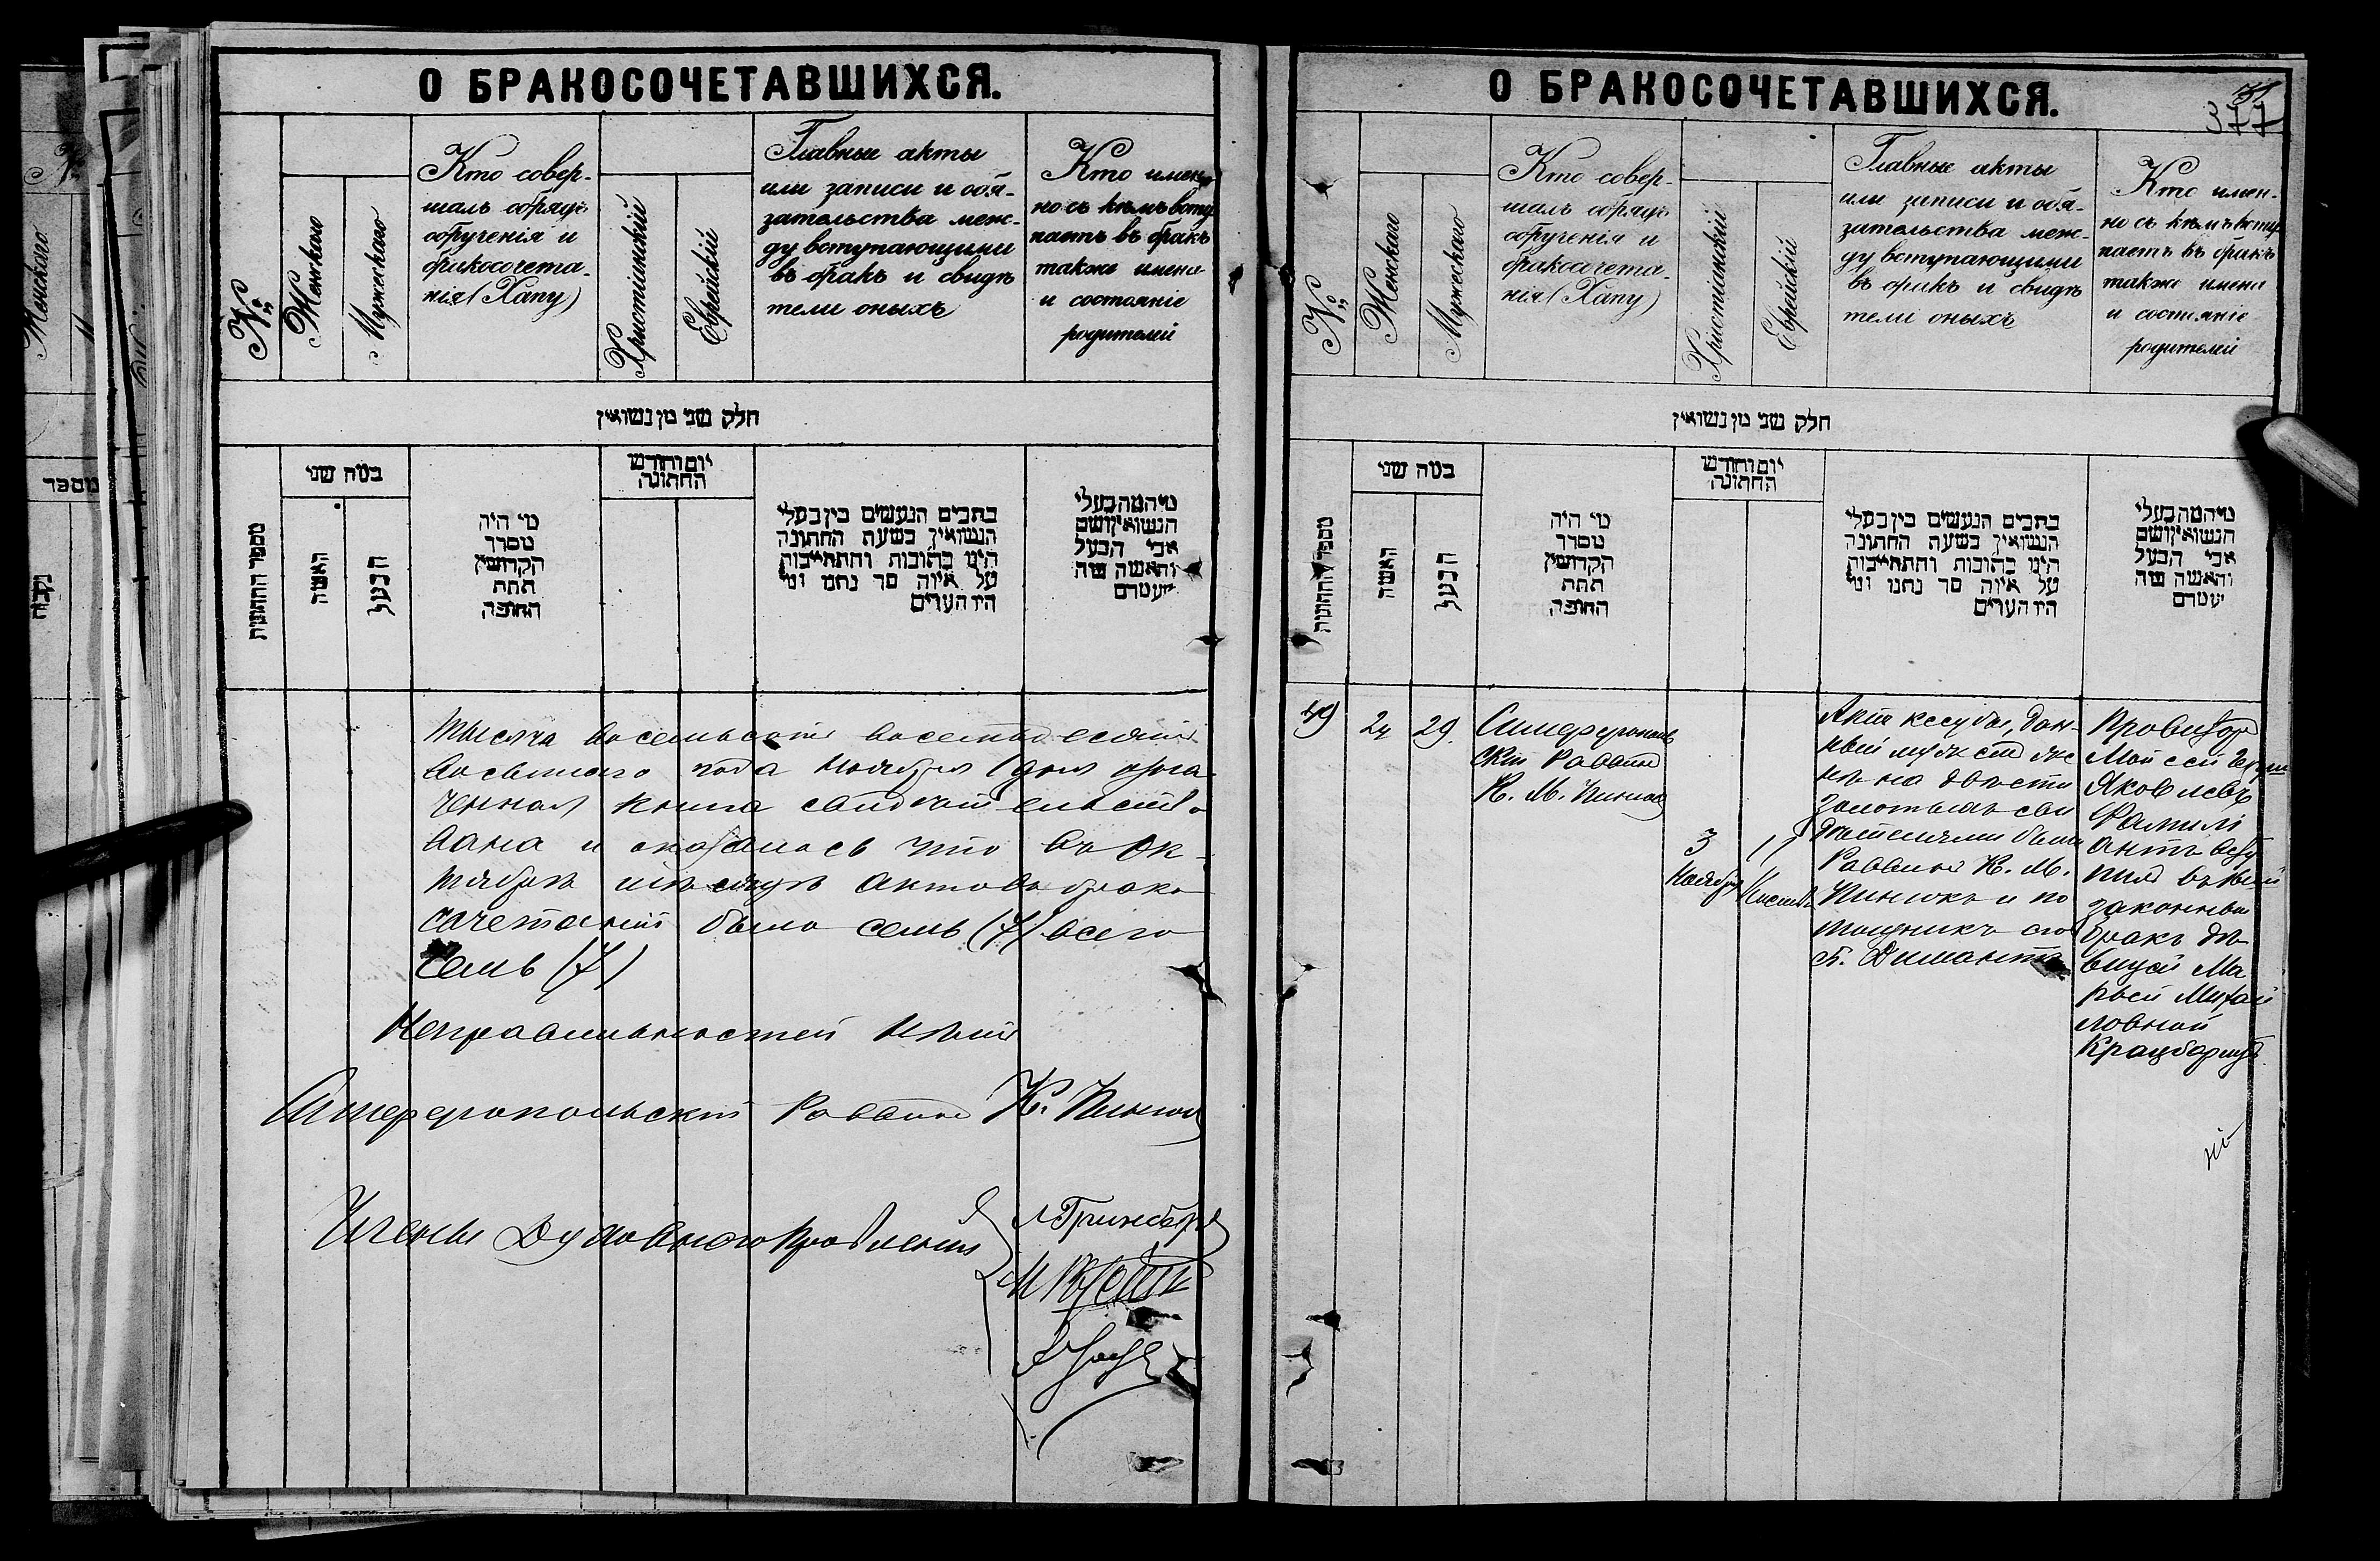 О БРАКОСОЧЕТАВШИХСЯ.
№
Женскаго
Мужескаго
Кто совер-
шалъ обрядъ
обрученія и
бракосочета-
нія (Хапу)
Христіанскій
Еврейскій
Главные акты
или записи и обя-
зательства меж-
ду вступающими
въ бракъ и свидѣ
тели оныхъ
Кто имен-
но съ кѣмъ всту
паетъ въ бракъ
также имена
и состояніе
родителей
חלק שני מן נשואין
מספר החתונות
במה שני
האשה
הבעל
מי היה
מסדר
הקדושין
תחת
החופה
יום וחודש
החתונה
כתבים הנעשים בין בעלי
הנשואין בשעת החתונה
היינו כתובות והתחייבות
על איזה סך נתנו ומי
היו העדים
מי המה בעלי
הנשואין ושם
אבי הבעל
והאשה ומה
מעמדם
Тысяча восемьсотъ восемьдесятъ
восьмого года Ноября 1 дня
книга
вана и оказалось что въ Ок-
тябрѣ мѣсяцѣ актовъ брако
сочетаній было семь (7) всего
семь (7)
Неправильностей нѣтъ
Симферопольскій Раввинъ К. Пинкосъ
Члены Духовнаго Правленія
Гринберг
О БРАКОСОЧЕТАВШИХСЯ.
377
№
Женскаго
Мужескаго
Кто совер-
шалъ обрядъ
обрученія и
бракосочета-
нія (Хапу)
Христіанскій
Еврейскій
Главные акты
или записи и обя-
зательства меж-
ду вступающими
въ бракъ и свидѣ
тели оныхъ
Кто имен-
но съ кѣмъ всту
паетъ въ бракъ
также имена
и состояніе
родителей
חלק שני מן נשואין
מספר החתונות
במה שני
האשה
הבעל
מי היה
מסדר
הקדושין
תחת
החופה
יום וחודש
החתונה
כתבים הנעשים בין בעלי
הנשואין בשעת החתונה
היינו כתובות והתחייבות
על איזה סך נתנו ומי
היו העדים
מי המה בעלי
הנשואין ושם
אבי הבעל
והאשה ומה
מעמדם
49
24
29.
Симферополь
скій Раввинъ
К. М. Пинкосъ
3
Ноября
11
Кислевъ
Актъ кесубы, дан-
ный мужемъ же
нѣ на двѣсти
золотыхъ сви
дѣтелями были
Раввинъ К. М.
Пинкосъ и по
мощникъ его
Димантъ
Провизоръ
Мойсей
Яковлевъ
Фамилі
антъ всту
пилъ въ
законный
бракъ дѣ
вицей Ма
рьей Михай
ловной